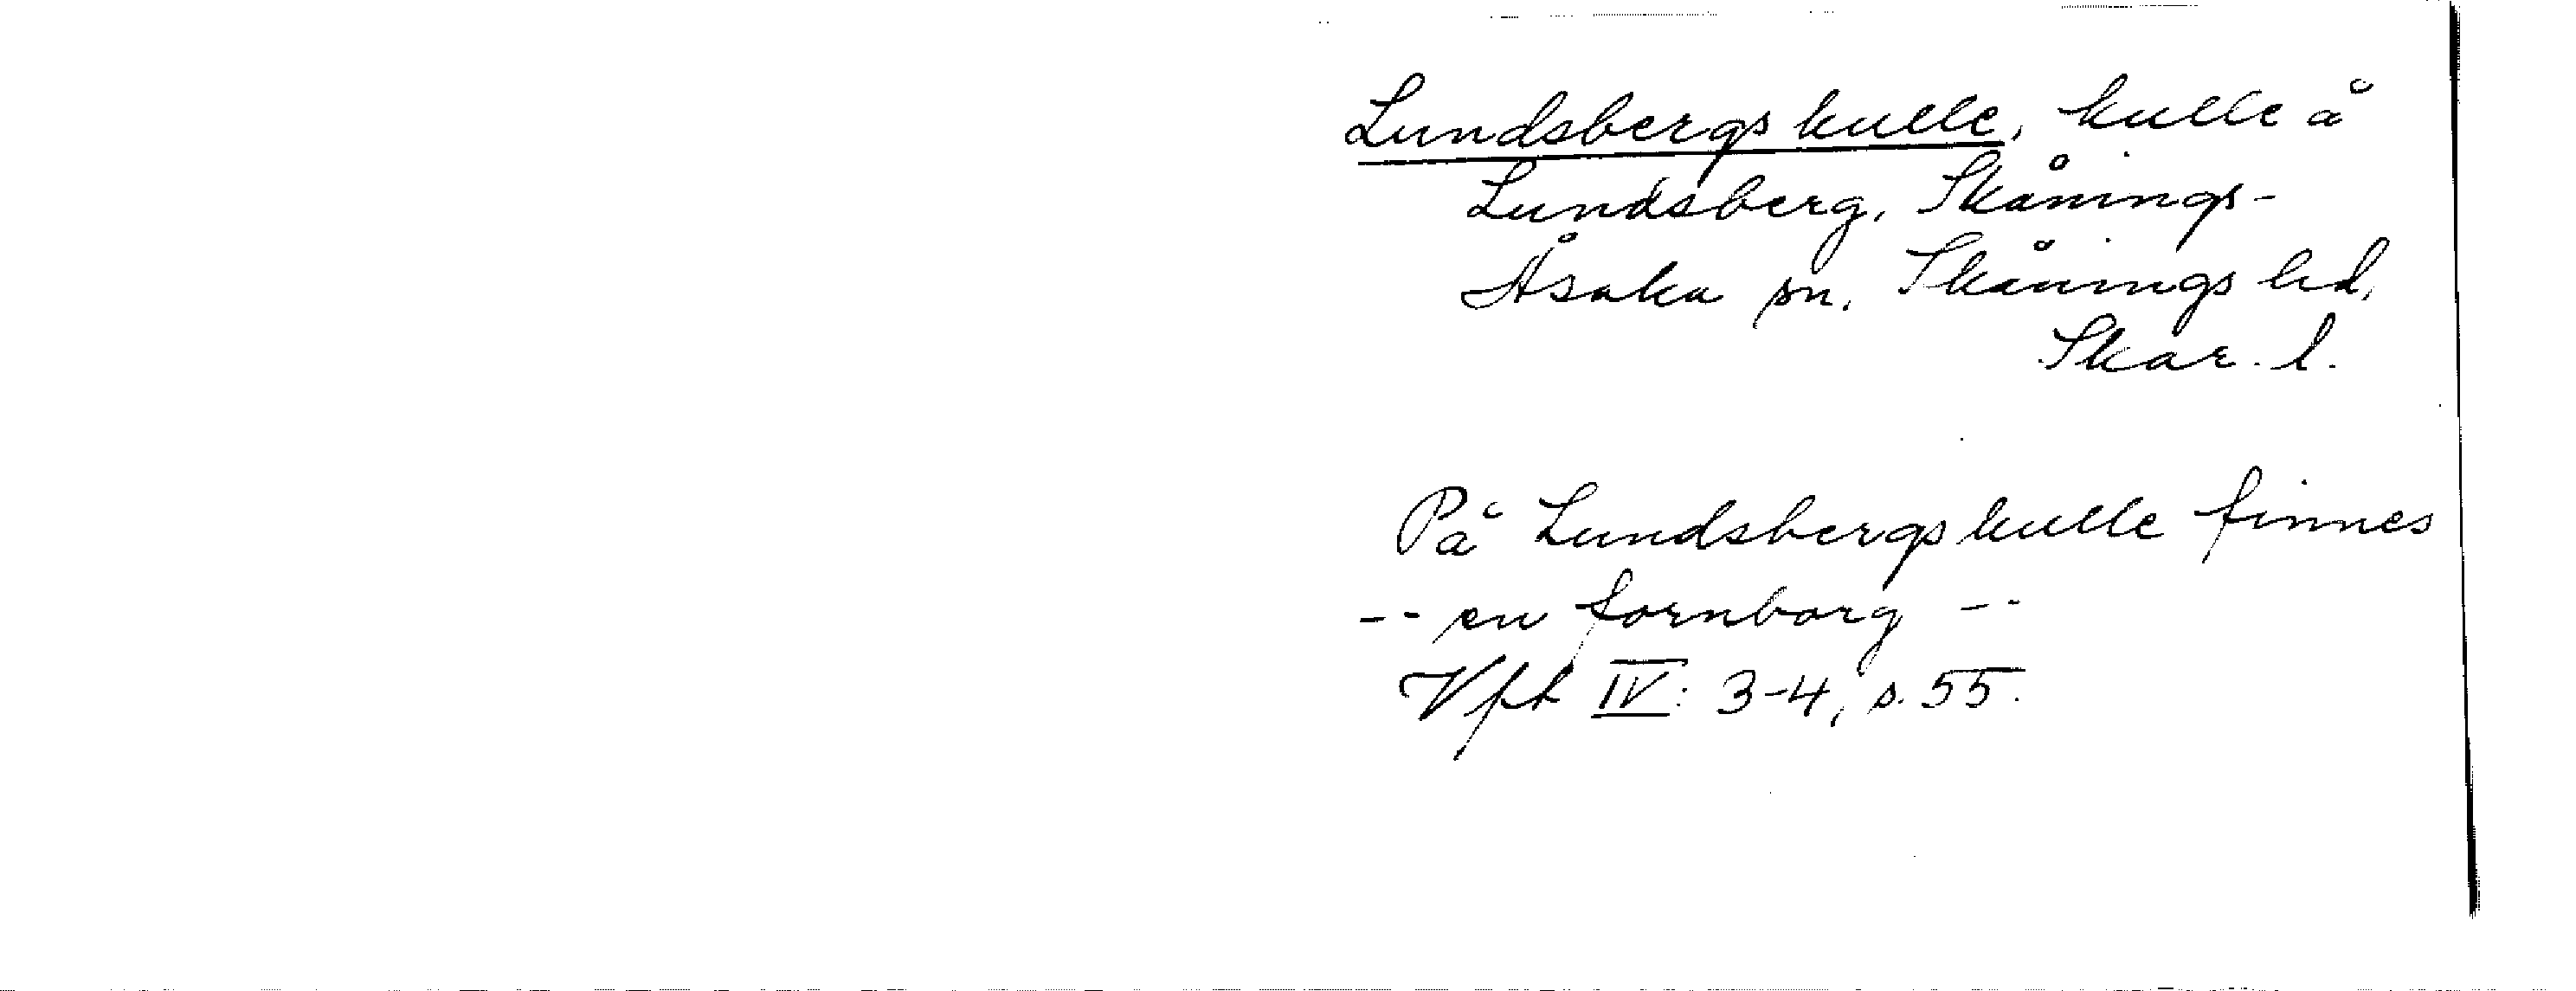 Lundsbergskulle, kulle å
Lundsberg, Skånings-
Åsaka sn. Skånings hd,
Skar. l.
På Lundsbergskulle finnes
-- en fornborg --
Vft IV: 3-4, s. 55.